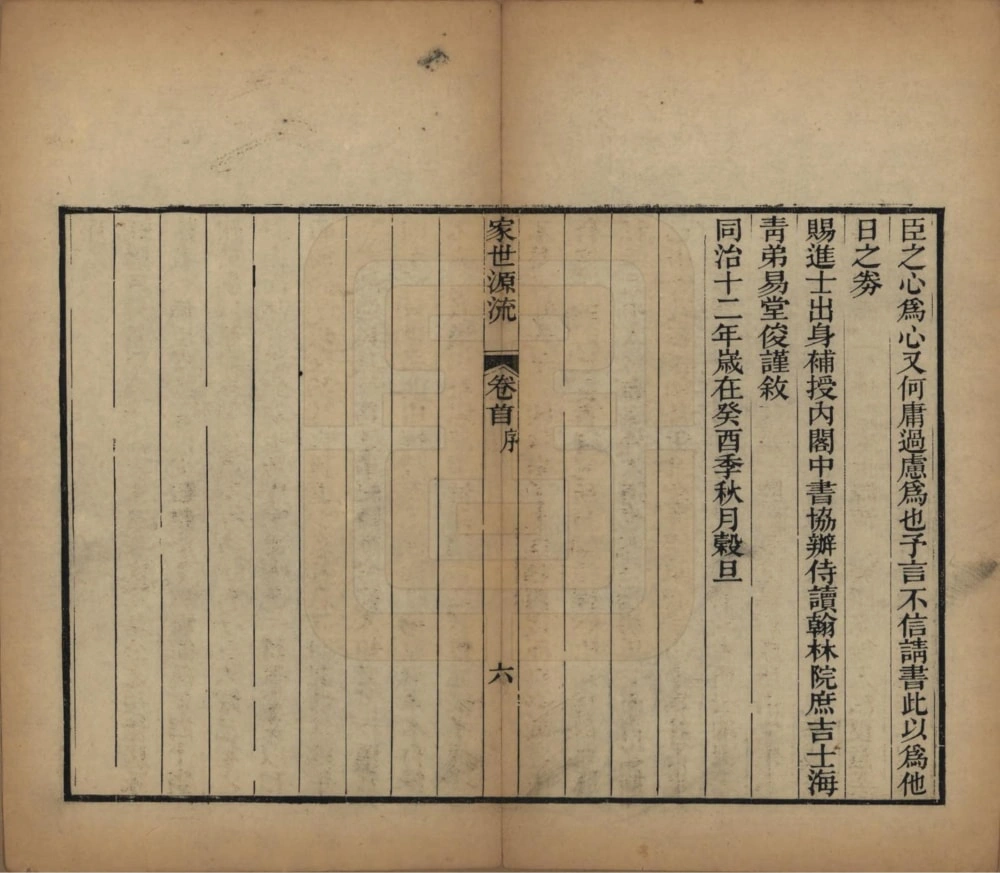 臣之心爲心又何庸過慮爲也予言不信請書此以爲他
日之劵
賜進士出身補授內閣中書協辦侍讀翰林院庶吉士海
青弟易堂俊謹敘
同治十二年歲在癸酉季秋月穀旦
家世源流
卷首序
六